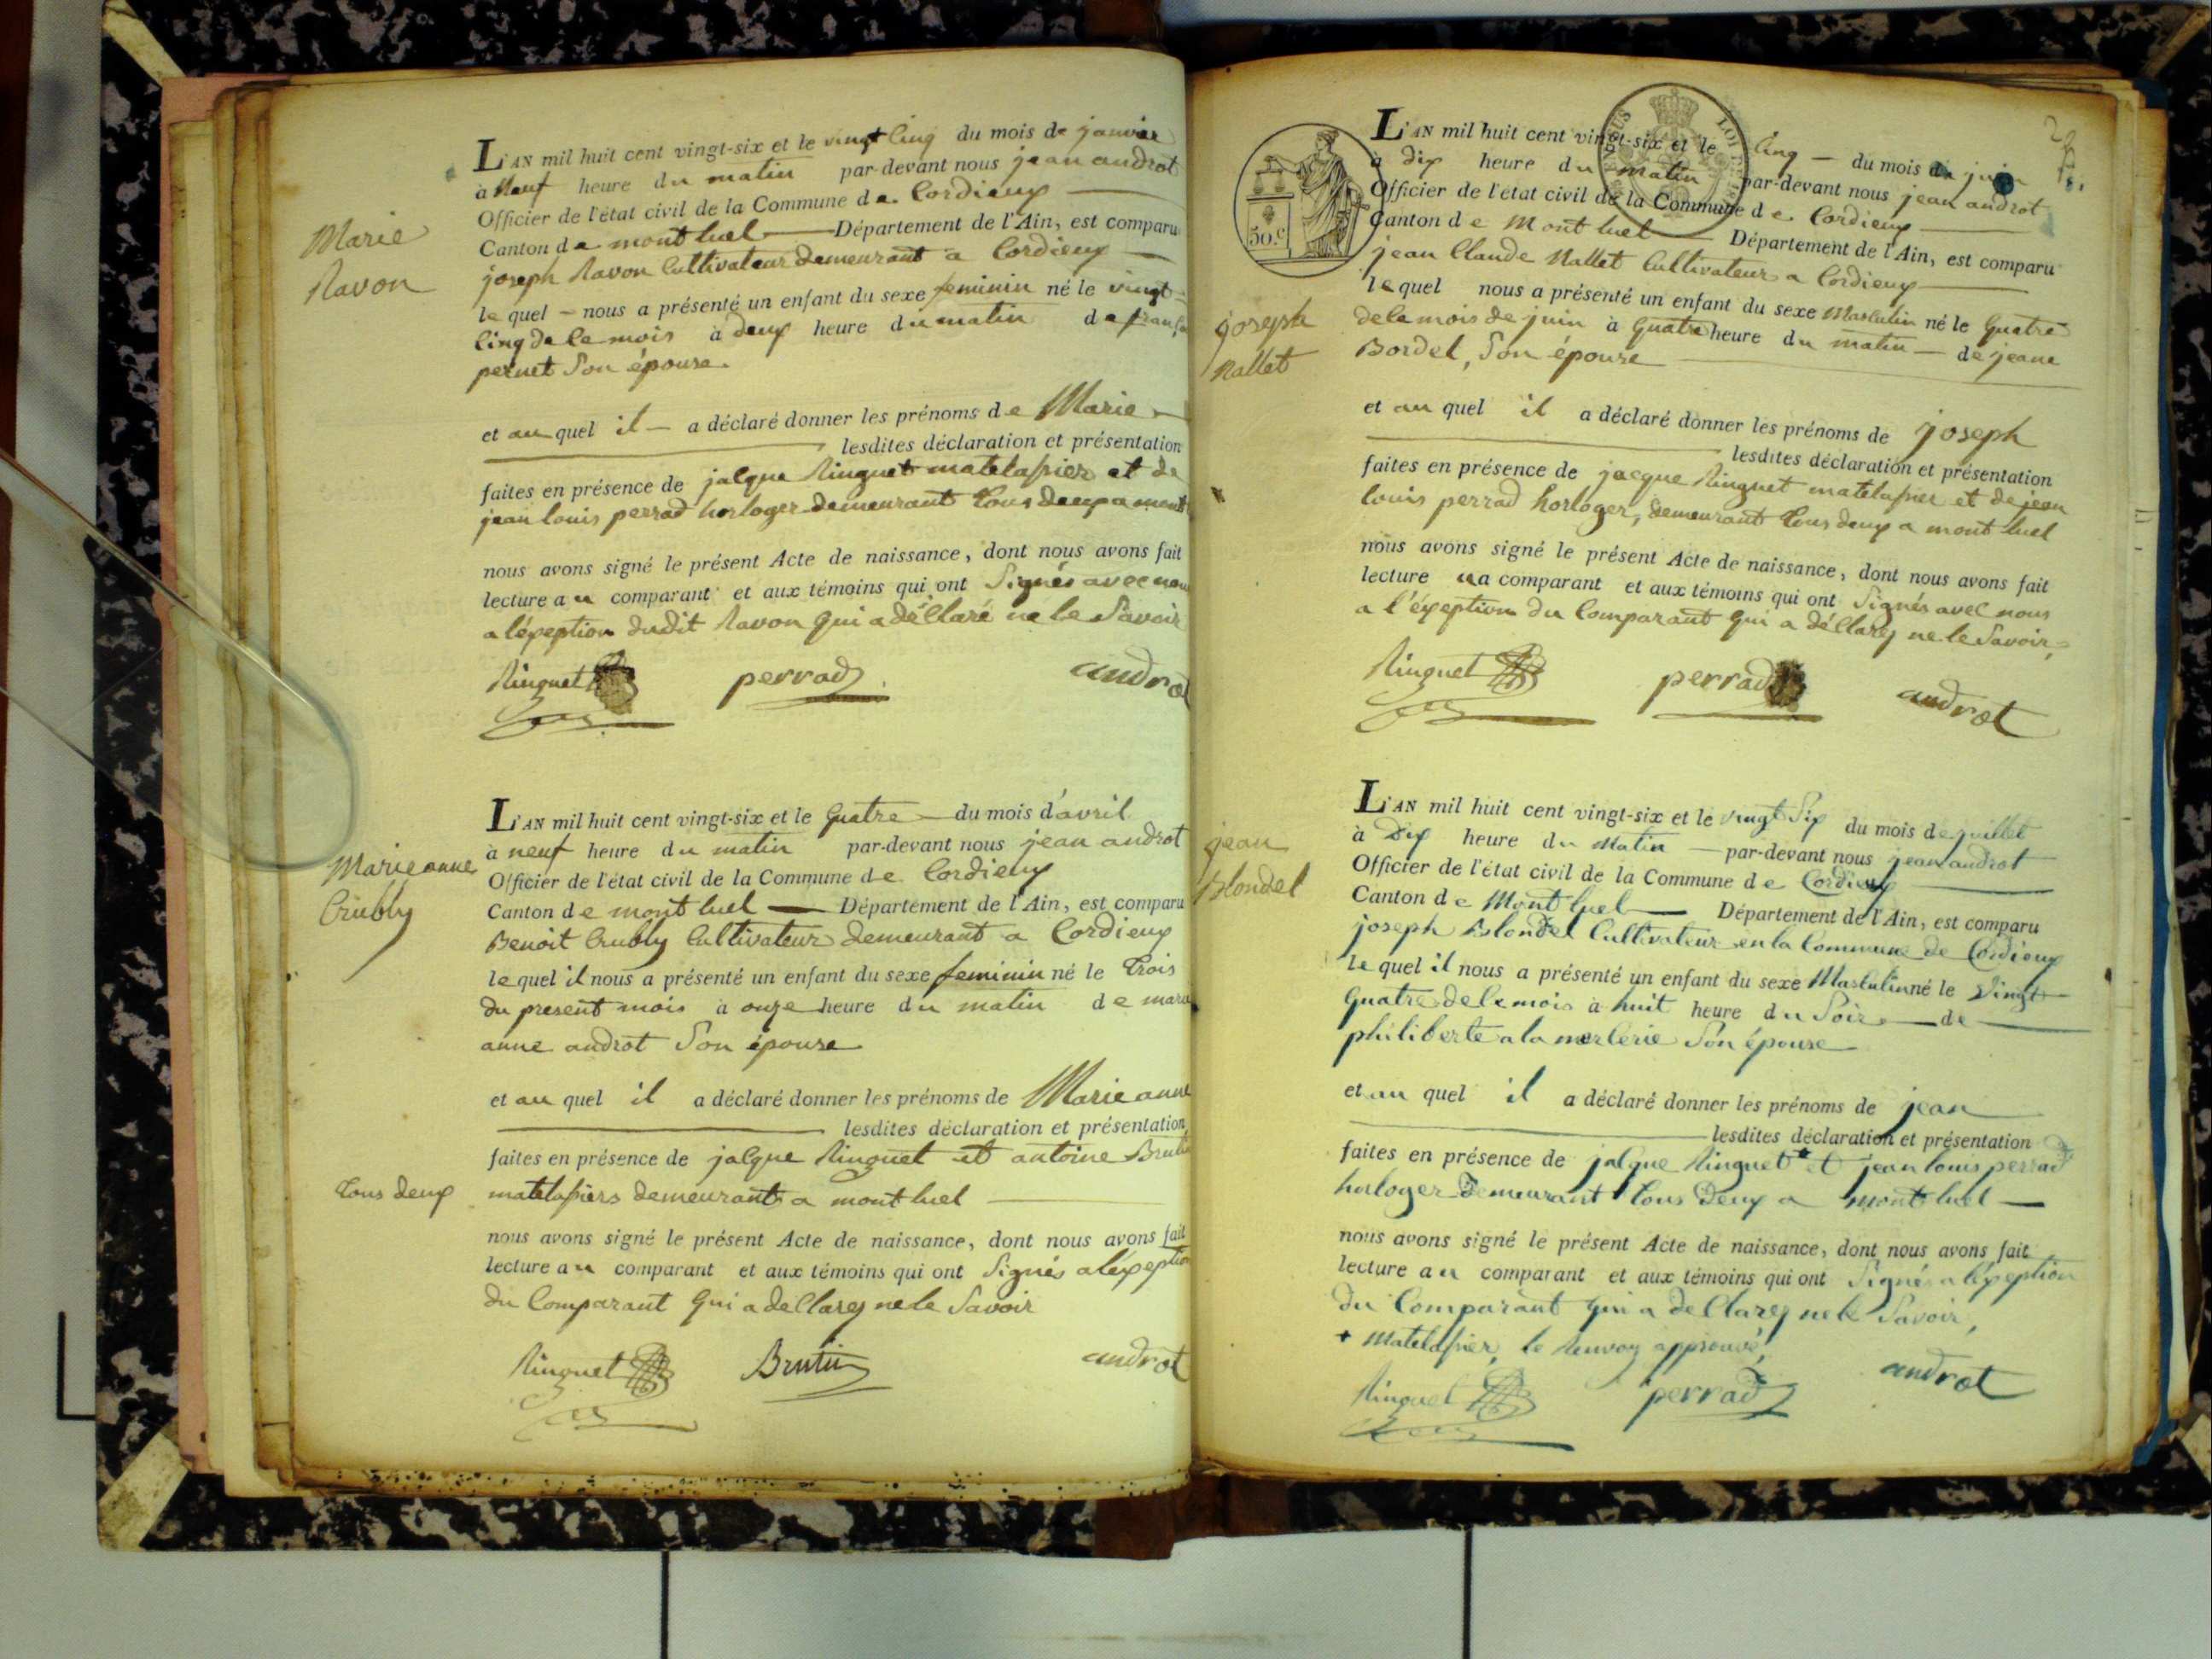 Marie
Ravon
L'AN mil huit cent vingt-six et le vingt Cinq du mois de janvier
à Neuf heure du matin par-devant nous jean androt
Officier de l'état civil de la Commune de Cordieux
Canton de mont luel Département de l'Ain, est comparu
joseph Ravon Cultivateur demeurant a Cordieux
le quel nous a présenté un enfant du sexe feminin né le vingt
Cinq de Ce mois à deux heure du matin de
pernet Son épouse.
et au quel il a déclaré donner les prénoms de Marie
lesdites déclaration et présentation
faites en présence de jacque Ringuet matelassier et de
jean louis perrad horloger demeurant tous deux a mont
nous avons signé le présent Acte de naissance, dont nous avons fait
lecture au comparant et aux témoins qui ont Signés avec nous
a l'éxeption dudit Ravon qui a déClaré ne le Savoir
Ringuet perrad androt
Marie anne
Crubly
L'AN mil huit cent vingt-six et le quatre du mois d'avril
à neuf heure du matin par-devant nous jean androt
Officier de l'état civil de la Commune de Cordieux
Canton de mont luel Département de l'Ain, est comparu
Benoit Crubly Cultivateur demeurant a Cordieux
le quel il nous a présenté un enfant du sexe feminin né le trois
du present mois à onze heure du matin de marie
anne androt Son épouse
et au quel il a déclaré donner les prénoms de Marie anne
lesdites déclaration et présentation
faites en présence de jacque Ringuet et antoine Brutin
tous deux matelassiers demeurant a mont luel
nous avons signé le présent Acte de naissance, dont nous avons fait
lecture au comparant et aux témoins qui ont Signés a l'éxeption
du Comparant qui a deClarez ne le Savoir
Ringuet Brutin androt
50.c
joseph
Nallet
L'AN mil huit cent vingt-six et le Cinq du mois de juin
à dix heure du matin par-devant nous jean androt
Officier de l'état civil de la Commune de Cordieux
Canton de Mont luel Département de l'Ain, est comparu
jean Claude Nallet Cultivateur a Cordieux
le quel nous a présenté un enfant du sexe Masculin né le quatre
de Ce mois de juin à quatre heure du matin de jeane
Bordel, Son épouse
et au quel il a déclaré donner les prénoms de joseph
lesdites déclaration et présentation
faites en présence de jacque Ringuet matelassier et de jean
louis perrad horloger, demeurant tous deux a mont luel
nous avons signé le présent Acte de naissance, dont nous avons fait
lecture au comparant et aux témoins qui ont Signés avec nous
a l'éxeption du Comparant qui a déClarez ne le Savoir,
Ringuet perrad androt
jean
Blondel
L'AN mil huit cent vingt-six et le vingt Six du mois de juillet
à Dix heure du Matin par-devant nous jean androt
Officier de l'état civil de la Commune de Cordieux
Canton de Mont luel Département de l'Ain, est comparu
joseph Blondel Cultivateur en la Commune de Cordieux
le quel il nous a présenté un enfant du sexe Masculin né le Vingt
quatre de Ce mois à huit heure du Soir de
philiberte a la merlerie Son épouse
et au quel il a déclaré donner les prénoms de jean
lesdites déclaration et présentation
faites en présence de jacque Ringuet + et jean louis perrad
horloger demeurant tous deux a mont luel
nous avons signé le présent Acte de naissance, dont nous avons fait
lecture au comparant et aux témoins qui ont Signés a l'éxeption
du Comparant qui a deClarez ne le Savoir,
+ Matelassier, le Renvoy approuvé
Ringuet perrad androt